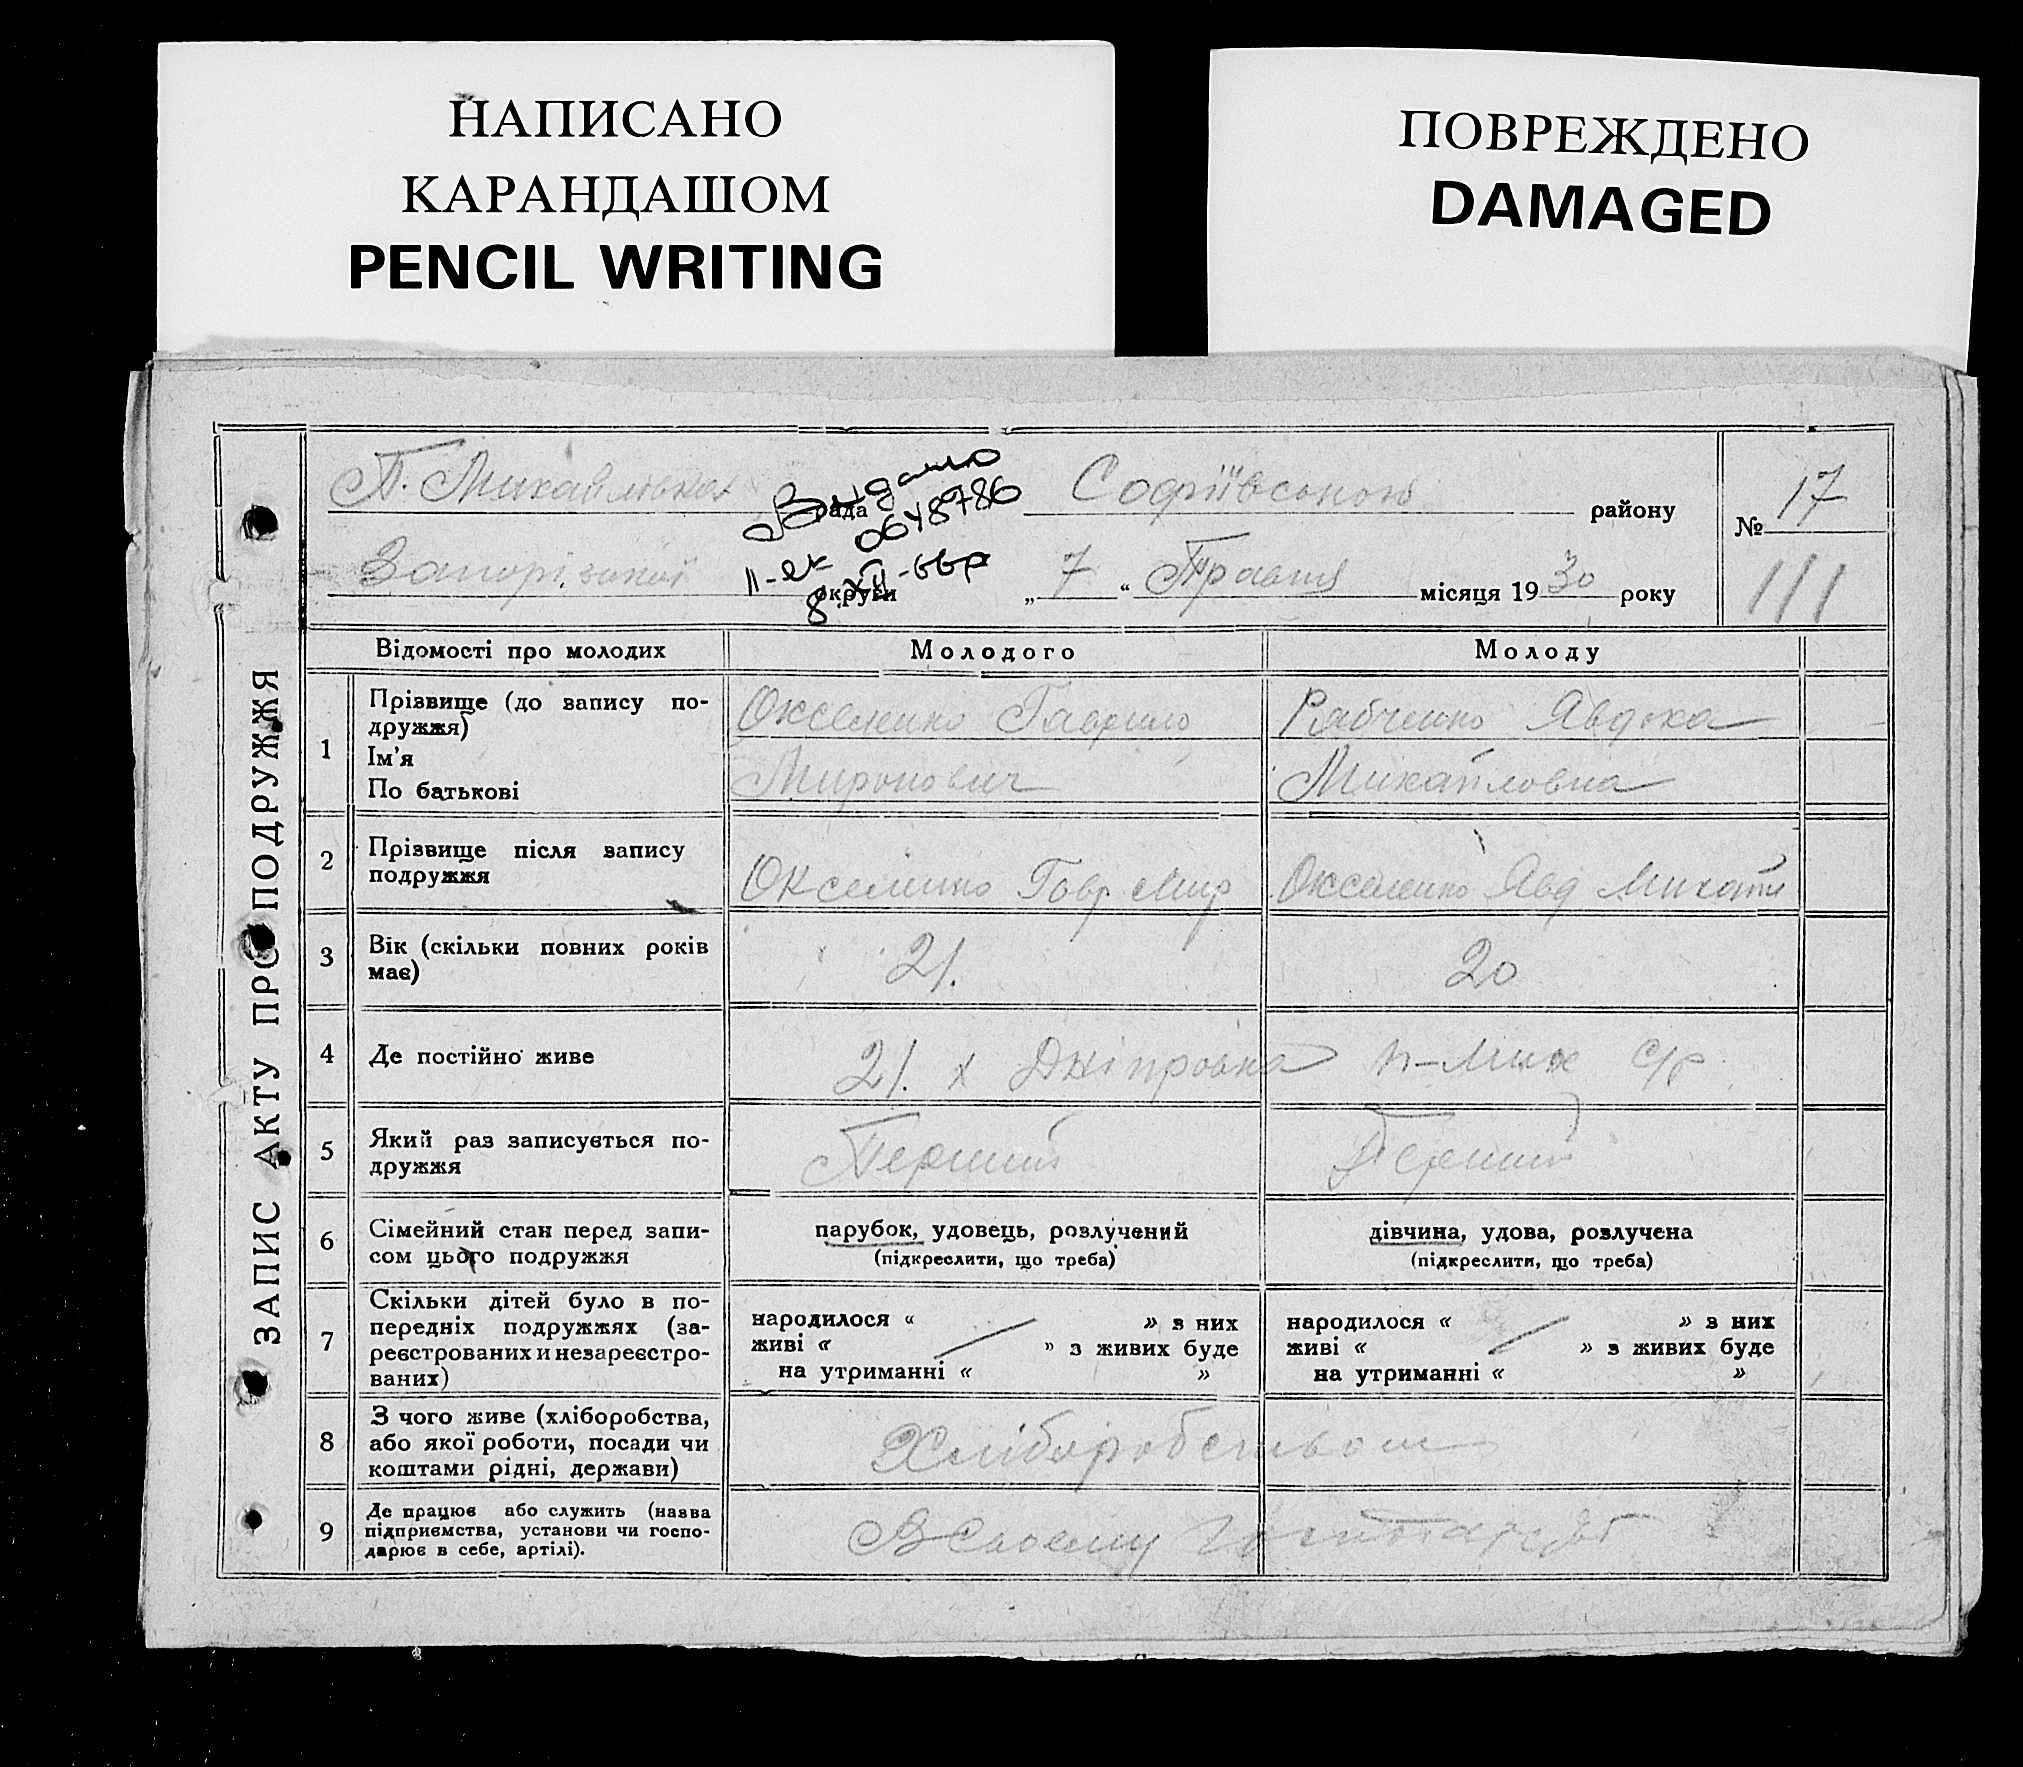 НАПИСАНО
КАРАНДАШОМ
PENCIL WRITING
ПОВРЕЖДЕНО
DAMAGED
ЗАПИС АКТУ ПРО ПОДРУЖЖЯ
П. Михайлівка рада Софіївського району
№ 17
Видано
0648786
Запорізької округи „ 7 “ Травня місяця 19 30 року
111
Відомості про молодих Молодого Молоду
1 Прізвище (до запису по-
дружжя)
Ім'я
По батькові
Оксененко Гаврило
Миронович
Рябченко Явдоха
Михайловна
2 Прізвище після запису
подружжя
Оксененко Гавр Мир
Оксененко Явд Михайл
3 Вік (скільки повних років
має)
21.
20
4 Де постійно живе
21. х Дніпровка П-Мих с/р
5 Який раз записується по-
дружжя
Перший
Перший
6 Сімейний стан перед запи-
сом цього подружжя
парубок, удовець, розлучений
(підкреслити, що треба)
дівчина, удова, розлучена
(підкреслити, що треба)
7 Скільки дітей було в по-
передніх подружжях (за-
реєстрованих и незареєстро-
ваних)
народилося “ ” з них
живі “ ” з живих буде
на утриманні “ ”
народилося “ ” з них
живі “ ” з живих буде
на утриманні “ ”
8 З чого живе (хліборобства,
або якої роботи, посади чи
коштами рідні, держави)
Хліборобством
9 Де працює або служить (назва
підприємства, установи чи госпо-
дарює в себе, артілі).
В своєму